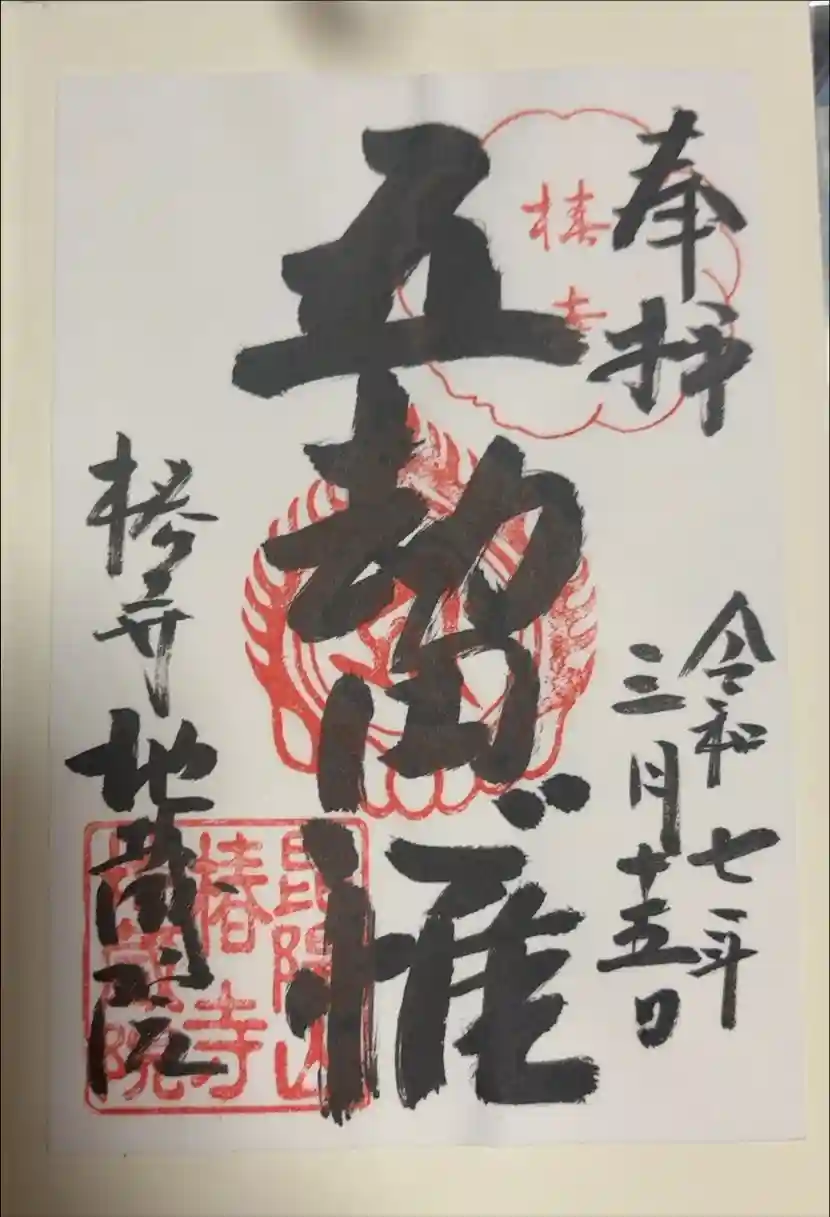 奉拝
椿寺
令和七年
三月十五日
五劫思惟
椿寺 地蔵院
昆陽山
椿寺
地蔵院